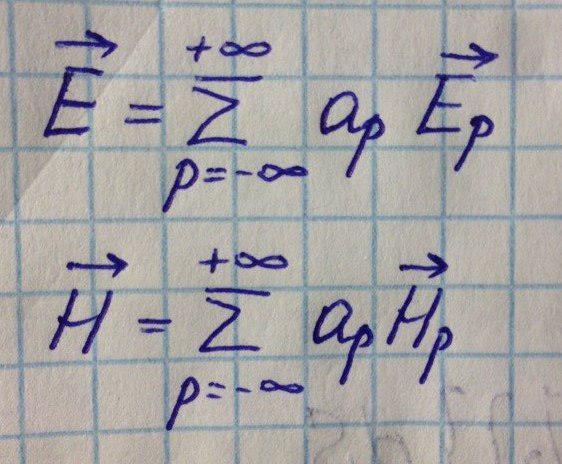 $\vec{E} = \sum_{p=-\infty}^{+\infty} a_p \vec{E}_p$
$\vec{H} = \sum_{p=-\infty}^{+\infty} a_p \vec{H}_p$